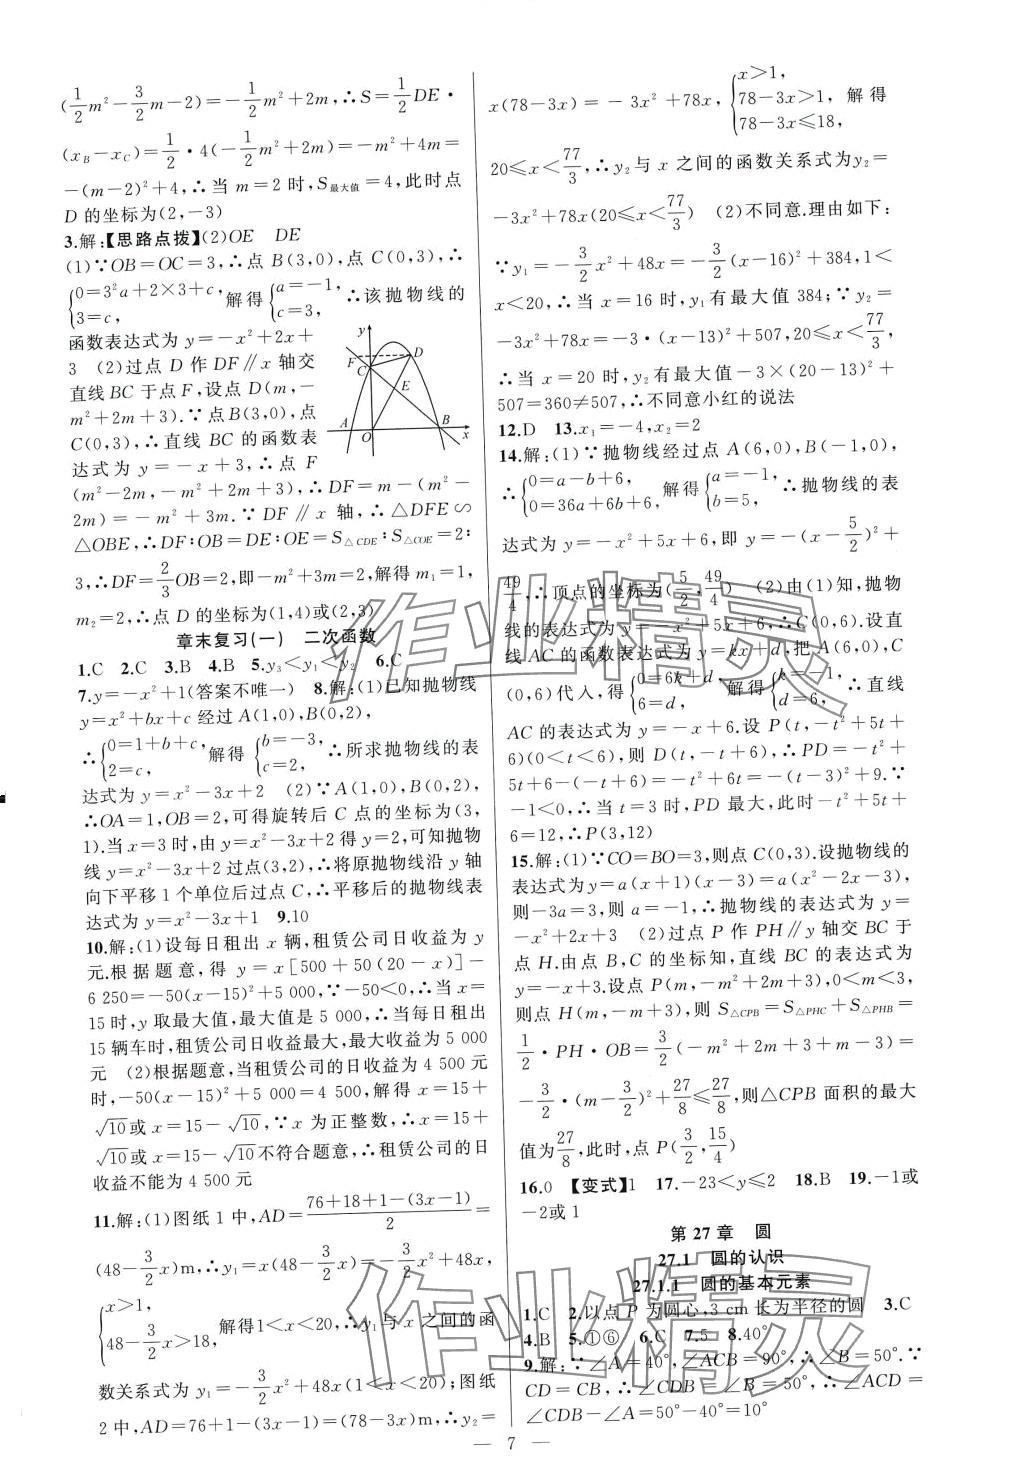 (1/2m²−3/2m−2)=−1/2m²+2m,∴S=1/2DE·
(x_B−x_C)=1/2·4(−1/2m²+2m)=−m²+4m=
−(m−2)²+4,∴当 m=2 时,S最大值=4,此时点
D 的坐标为(2,−3)
3.解:【思路点拨】(2)OE DE
(1)∵OB=OC=3,∴点 B(3,0),点 C(0,3),∴
{0=3²a+2×3+c, 3=c, 解得{a=−1, c=3, ∴该抛物线的
函数表达式为 y=−x²+2x+
3 (2)过点 D 作 DF∥x 轴交
直线 BC 于点 F,设点 D(m,−
m²+2m+3).∵点 B(3,0),点
C(0,3),∴直线 BC 的函数表
达式为 y=−x+3,∴点 F
(m²−2m,−m²+2m+3),∴DF=m−(m²−
2m)=−m²+3m.∵DF∥x 轴,∴△DFE∽
△OBE,∴DF∶OB=DE∶OE=S△CDE∶S△COE=2∶
3,∴DF=2/3OB=2,即−m²+3m=2,解得 m₁=1,
m₂=2,∴点 D 的坐标为(1,4)或(2,3)
y
F
D
C
E
A
O
B
x
章末复习(一) 二次函数
1.C 2.C 3.B 4.B 5.y₃<y₁<y₂ 6.C
7.y=−x²+1(答案不唯一) 8.解:(1)已知抛物线
y=x²+bx+c 经过 A(1,0),B(0,2),
∴{0=1+b+c, 2=c, 解得{b=−3, c=2, ∴所求抛物线的表
达式为 y=x²−3x+2 (2)∵A(1,0),B(0,2),
∴OA=1,OB=2,可得旋转后 C 点的坐标为(3,
1).当 x=3 时,由 y=x²−3x+2 得 y=2,可知抛物
线 y=x²−3x+2 过点(3,2),∴将原抛物线沿 y 轴
向下平移 1 个单位后过点 C,∴平移后的抛物线表
达式为 y=x²−3x+1 9.10
10.解:(1)设每日租出 x 辆,租赁公司日收益为 y
元.根据题意,得 y=x[500+50(20−x)]−
6 250=−50(x−15)²+5 000,∵−50<0,∴当 x=
15 时,y 取最大值,最大值是 5 000,∴当每日租出
15 辆车时,租赁公司日收益最大,最大收益为 5 000
元 (2)根据题意,当租赁公司的日收益为 4 500 元
时,−50(x−15)²+5 000=4 500,解得 x=15+
√10或 x=15−√10,∵x 为正整数,∴x=15+
√10或 x=15−√10不符合题意,∴租赁公司的日
收益不能为 4 500 元
11.解:(1)图纸 1 中,AD=(76+18+1−(3x−1))/2=
(48−3/2x)m,∴y₁=x(48−3/2x)=−3/2x²+48x,
{x>1, 48−3/2x>18, 解得1<x<20,∴y₁与 x 之间的函
数关系式为 y₁=−3/2x²+48x(1<x<20);图纸
2 中,AD=76+1−(3x−1)=(78−3x)m,∴y₂=
x(78−3x)=−3x²+78x,{x>1, 78−3x>1, 78−3x≤18, 解得
20≤x<77/3,∴y₂与 x 之间的函数关系式为y₂=
−3x²+78x(20≤x<77/3) (2)不同意.理由如下:
∵y₁=−3/2x²+48x=−3/2(x−16)²+384,1<
x<20,∴当 x=16 时,y₁有最大值 384;∵y₂=
−3x²+78x=−3·(x−13)²+507,20≤x<77/3,
∴当 x=20 时,y₂有最大值−3×(20−13)²+
507=360≠507,∴不同意小红的说法
12.D 13.x₁=−4,x₂=2
14.解:(1)∵抛物线经过点 A(6,0),B(−1,0),
∴{0=a−b+6, 0=36a+6b+6, 解得{a=−1, b=5, ∴抛物线的表
达式为 y=−x²+5x+6,即 y=−(x−5/2)²+
49/4,∴顶点的坐标为(5/2,49/4) (2)由(1)知,抛物
线的表达式为 y=−x²+5x+6,∴C(0,6).设直
线 AC 的函数表达式为 y=kx+d,把 A(6,0),C
(0,6)代入,得{0=6k+d, 6=d, 解得{k=−1, d=6, ∴直线
AC 的表达式为 y=−x+6.设 P(t,−t²+5t+
6)(0<t<6),则 D(t,−t+6),∴PD=−t²+
5t+6−(−t+6)=−t²+6t=−(t−3)²+9.∵
−1<0,∴当 t=3 时,PD 最大,此时−t²+5t+
6=12,∴P(3,12)
15.解:(1)∵CO=BO=3,则点 C(0,3).设抛物线的
表达式为y=a(x+1)(x−3)=a(x²−2x−3),
则−3a=3,则 a=−1,∴抛物线的表达式为 y=
−x²+2x+3 (2)过点 P 作 PH∥y 轴交 BC 于
点 H.由点 B,C 的坐标知,直线 BC 的表达式为
y=−x+3.设点 P(m,−m²+2m+3),0<m<3,
则点 H(m,−m+3),则 S△CPB=S△PHC+S△PHB=
1/2·PH·OB=3/2(−m²+2m+3+m−3)=
−3/2·(m−3/2)²+27/8≤27/8,则△CPB 面积的最大
值为27/8,此时,点 P(3/2,15/4)
16.0 【变式】1 17.−23<y≤2 18.B 19.−1或
−2或 1
第 27 章 圆
27.1 圆的认识
27.1.1 圆的基本元素
1.C 2.以点 P 为圆心,3 cm 长为半径的圆 3.C
4.B 5.①⑥ 6.C 7.5 8.40°
9.解:∵∠A=40°,∠ACB=90°,∴∠B=50°.∵
CD=CB,∴∠CDB=∠B=50°,∴∠ACD=
∠CDB−∠A=50°−40°=10°
— 7 —
作业精灵
作业精灵